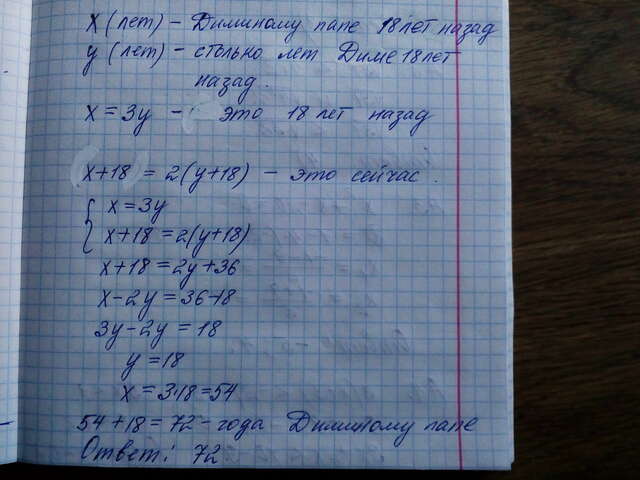 х (лет) – Диминому папе 18 лет назад
у (лет) – столько лет Диме 18 лет
назад.
х = 3у – это 18 лет назад
х+18 = 2(у+18) – это сейчас.
{ х = 3у
х+18 = 2(у+18)
х+18 = 2у+36
х-2у = 36-18
3у-2у = 18
у = 18
х = 3·18 = 54
54+18 = 72 – года Диминому папе
Ответ: 72